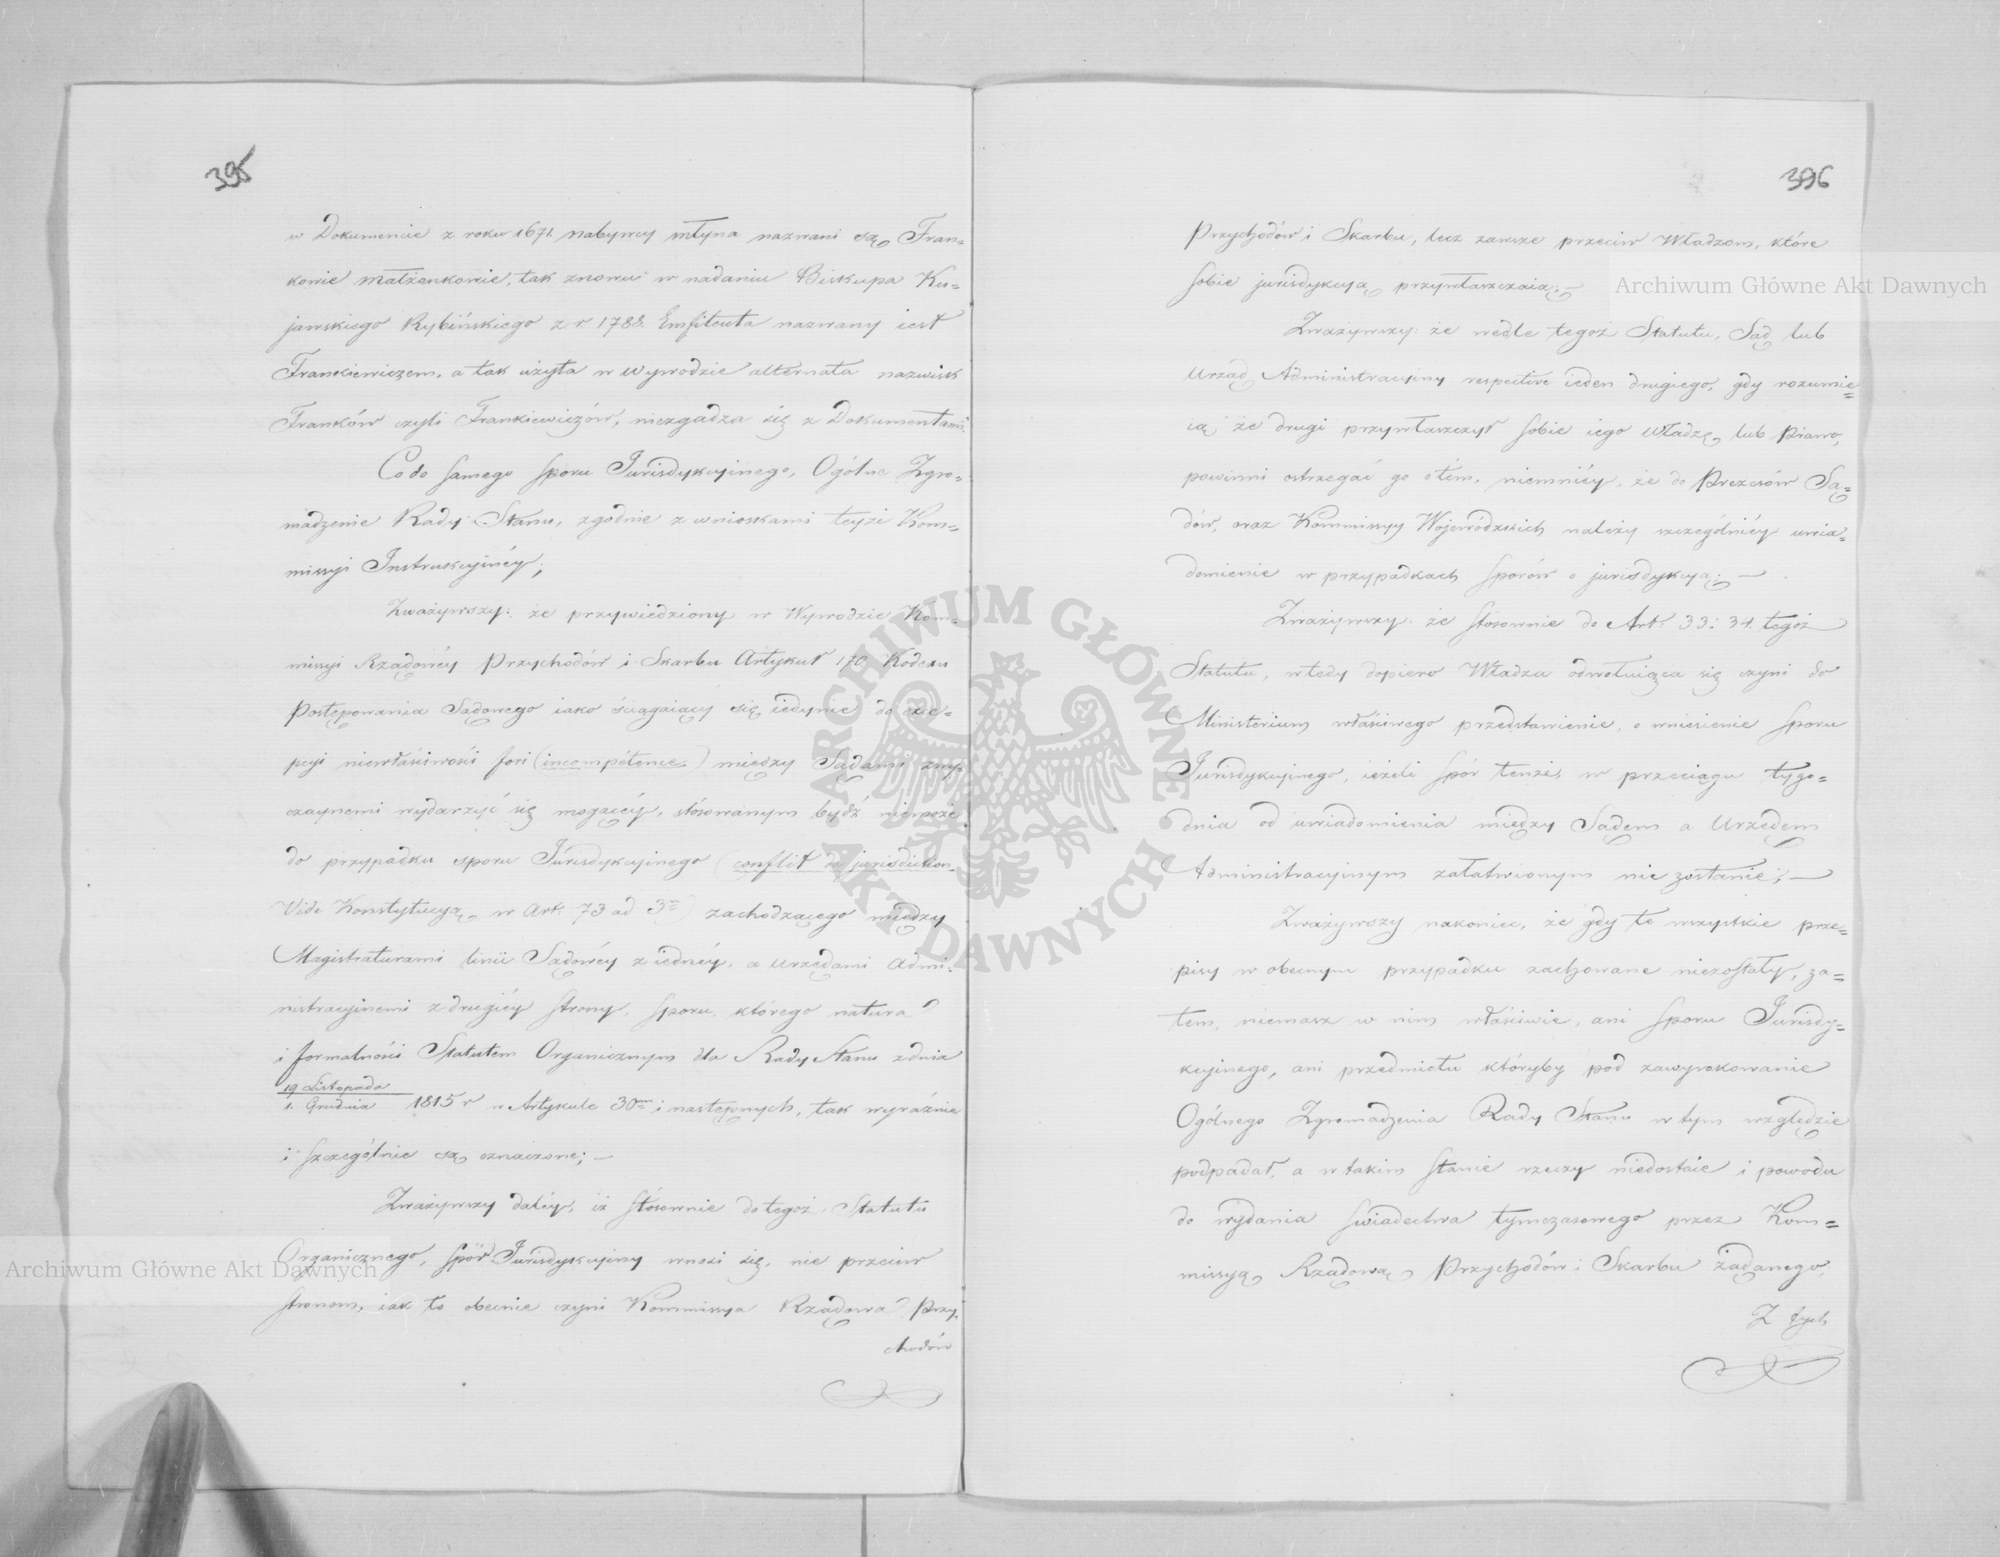 395
w Dokumencie z roku 1671 nabywcy młyna nazwani są Fran=
kowie małżonkowie, tak znowu w nadaniu Biskupa Ku=
jawskiego Rybińskiego z r 1788. Emfiteuta nazwany iest
Frankiewiczem, a tak użyta w wywodzie alternata nazwisk
Franków czyli Frankiewiczów, niezgadza się z Dokumentami.
Co do samego sporu Jurisdykcyinego, Ogólne Zgro=
madzenie Rady Stanu, zgodnie z wnioskami teyże Kom=
missyi Instrukcyinéy;
Zważywszy: że przywiedziony w Wywodzie Kom=
missyi Rządowéy Przychodów i Skarbu Artykuł 170 Kodexu
Postępowania Sądowego iako ściągaiący się iedynie do exce=
pcyi niewłaściwości fori (incompétence) między Sądami zwy=
czaynemi wydarzyć się mogącéy, stósowanym bydź niemoże
do przypadku sporu Jurisdykcyinego (conflit de jurisdiction
Vide Konstytucyą w Art. 73 ad 3m) zachodzącego między
Magistraturami linii Sądowéy z iednéy, a Urzędami Admi=
nistracyinemi z drugiéy strony, sporu, którego natura
i formalności Statutem Organicznym dla Rady Stanu z dnia
19 Listopada
1. Grudnia 1815 r w Artykule 30m i następnych, tak wyraźnie
i szczególnie są oznaczone; —
Zważywszy daléy, iż stósownie do tegoż Statutu
Organicznego, spór Jurisdykcyiny wnosi się, nie przeciw
stronom, iak to obecnie czyni Kommissya Rządowa Przy=
chodów
396
Przychodów i Skarbu, lecz zawsze przeciw Władzom, które
sobie jurisdykcyą przywłaszczaią; —
Zważywszy: że wedle tegoż Statutu, Sąd lub
Urząd Administracyiny respective ieden drugiego, gdy rozumie=
ią że drugi przywłaszczył sobie iego władzę, lub Prawo,
powinni ostrzegać go o tém, niemniéy, że do Prezesów Są=
dów, oraz Kommissyy Wojewódzkich należy szczególniéy uwia=
domienie w przypadkach sporów o jurisdykcyą; —
Zważywszy: że stósownie do Art. 33: 34. tegoż
Statutu, wtedy dopiero Władza odwołuiąca się czyni do
Ministerium właściwego przedstawienie, o wniesienie sporu
Jurisdykcyinego, ieżeli spór tenże, w przeciągu tygo=
dnia od uwiadomienia między Sądem a Urzędem
Administracyinym załatwionym nie zostanie; —
Zważywszy nakoniec, że gdy te wszystkie prze=
pisy w obecnym przypadku zachowane niezostały, za=
tem, niemasz w nim właściwie, ani sporu Jurisdy=
kcyinego, ani przedmiotu któryby pod zawyrokowanie
Ogólnego Zgromadzenia Rady Stanu w tym względzie
podpadał, a w takim stanie rzeczy niedostaie i powodu
do wydania świadectwa tymczasowego przez Kom=
missyą Rządową Przychodów i Skarbu żądanego.
Z tych
Archiwum Główne Akt Dawnych
Archiwum Główne Akt Dawnych
ARCHIWUM GŁÓWNE
AKT DAWNYCH